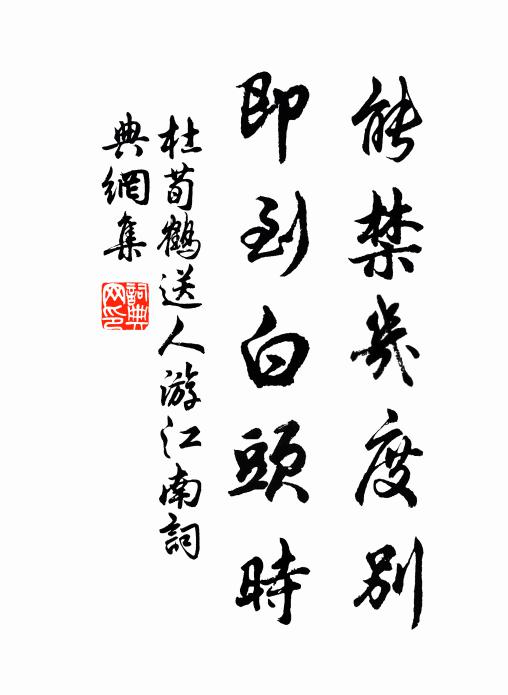 能禁幾度別
即到白頭時
杜荀鶴送人游江南詞
典網集
詞典
网印